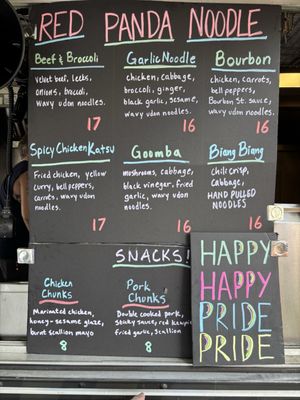 RED PANDA NOODLE
Beef & Broccoli
Velvet beef, leeks,
onions, broccoli,
wavy udon noodles.
17
Garlic Noodle
chicken, cabbage,
broccoli, ginger,
black garlic, sesame,
wavy udon noodles.
16
Bourbon
chicken, carrots,
bell peppers,
Bourbon St. sauce,
wavy udon noodles.
16
Spicy Chicken Katsu
Fried chicken, yellow
curry, bell peppers,
carrots, wavy udon
noodles.
17
Goomba
mushrooms, cabbage,
black vinegar, fried
garlic, wavy udon
noodles.
16
Biang Biang
chili crisp,
Cabbage,
HAND PULLED
NOODLES
16
SNACKS!
Chicken
Chunks
Marinated chicken,
honey-sesame glaze,
burnt scallion mayo
8
Pork
Chunks
Double cooked pork,
sticky sauce, red kewpie
fried garlic, scallion
8
HAPPY
HAPPY
PRIDE
PRIDE